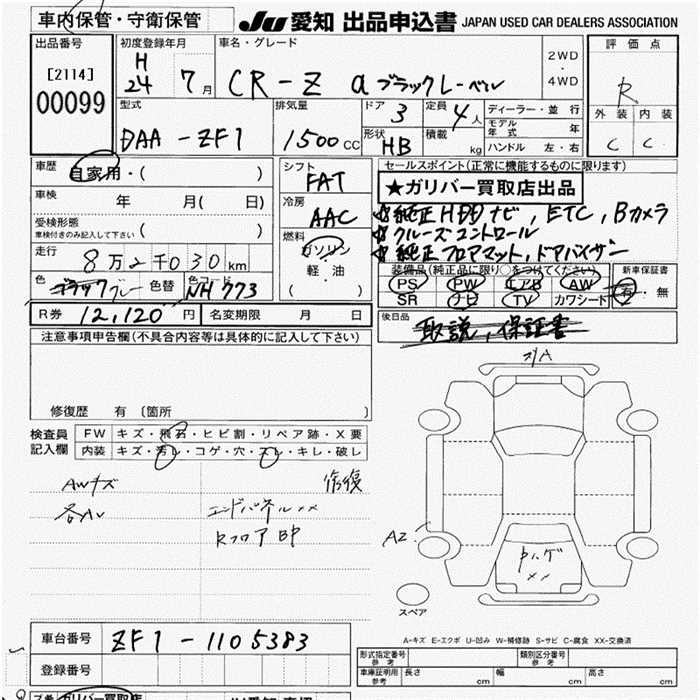 車内保管・守衛保管 JU 愛知 出品申込書 JAPAN USED CAR DEALERS ASSOCIATION
出品番号 [2114] 00099
初度登録年月 H 24 7月
車名・グレード CR-Z α ブラックレーベル
2WD・4WD
評価点 R
外装 内装
C C
型式 DAA-ZF1
排気量 1500cc
ドア 3
定員 4人
形状 HB
積載 kg
ディーラー・並行
モデル年式 年
ハンドル 左・右
車歴 自家用・( )
車検 年 月( 日)
受検形態 車検付きのみ記入して下さい ( )
走行 8万2千030km
色 ブラック グレー 色替 色コード NH 773
シフト FAT
冷房 AAC
燃料 ガソリン・軽油 ( )
セールスポイント(正常に機能するものに限ります)
★ガリバー買取店出品
☆純正HDDナビ, ETC, Bカメラ
☆クルーズコントロール
☆純正フロアマット, ドアバイザー
装備品(純正品に限り○をつけてください) 新車保証書
PS PW エアB AW 有・無
SR ナビ TV カワシート
後日品 取説, 保証書
R券 12,120円 名変期限 月 日
注意事項申告欄(不具合内容等は具体的に記入して下さい)
修復歴 有 〔箇所 〕
検査員記入欄
FW キズ・飛石・ヒビ割・リペア跡・X要
内装 キズ・汚レ・コゲ・穴・スレ・キレ・破レ
AWキズ 修復
各AU エンドパネルXX
Rフロア BP
ガA
A2
中ハゲ
XX
スペア
A-キズ E-エクボ U-凹み W-補修跡 S-サビ C-腐食 XX-交換済
車台番号 ZF1-1105383
登録番号
形式指定番号 参考 類別区分番号 参考
車庫証明用 参考 長さ cm 幅 cm 高さ cm
ガリバー買取店